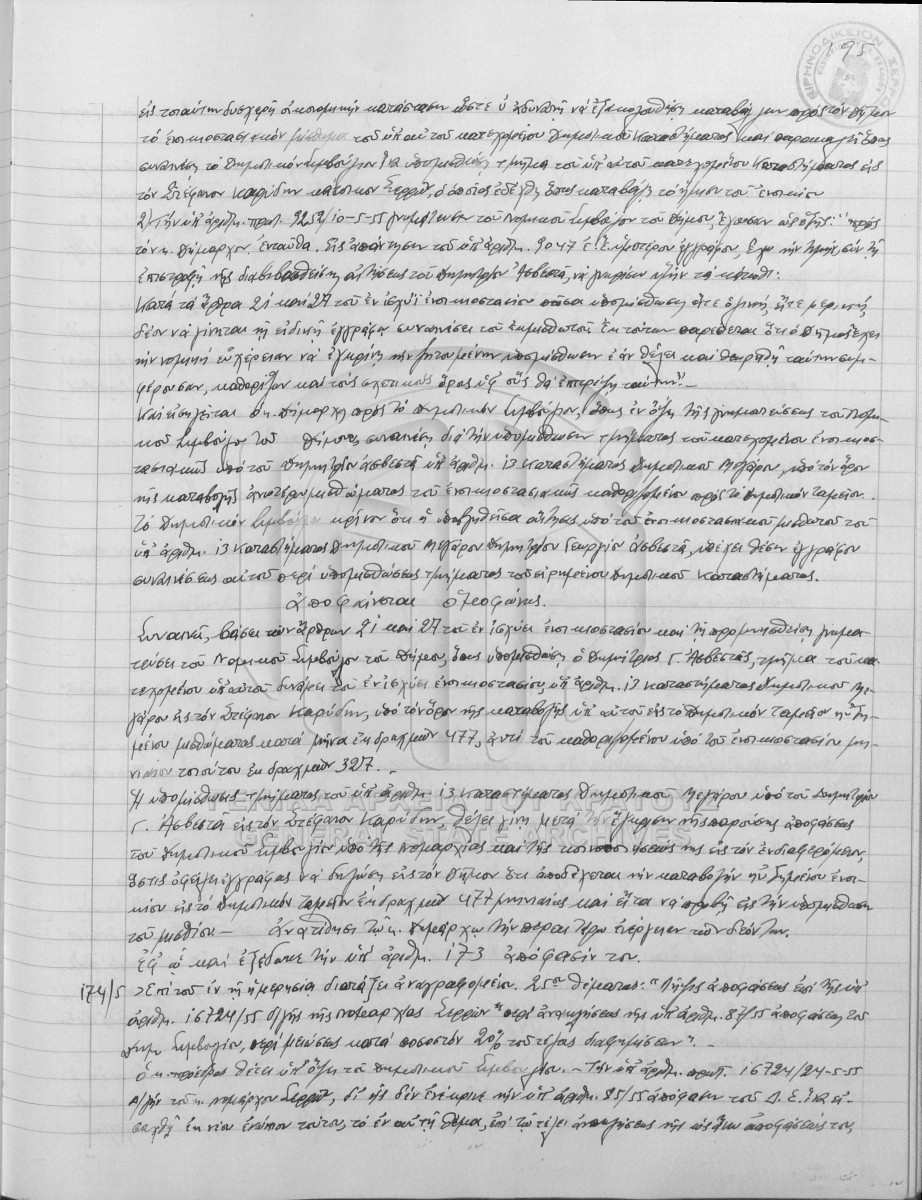 195
ΕΙΡΗΝΟΔΙΚΕΙΟΝ ΣΕΡΡΩΝ
εἰς τοιαύτην δυσχερῆ οἰκονομικήν κατάστασιν ὥστε ν' ἀδυνατῇ νά ἐξακολουθήσῃ καταβάλλων πρός τόν Δῆμον
τό ἐνοικιοστασιακόν μίσθωμα τοῦ ὑπ' αὐτοῦ κατεχομένου Δημοτικοῦ Καταστήματος καί παρακαλεῖ ὅπως
συναινέσῃ τό Δημοτικόν Συμβούλιον ἵνα ὑπομισθώσῃ τμῆμα τοῦ ὑπ' αὐτοῦ κατεχομένου Καταστήματος εἰς
τόν Στέφανον Καρύδην κάτοικον Σερρῶν, ὁ ὁποῖος ἐδέχθη ὅπως καταβάλῃ τό ἥμισυ τοῦ ἐνοικίου
2) Τήν ὑπ' ἀριθμ. πρωτ. 9252/10-5-55 γνωμάτευσιν τοῦ Νομικοῦ Συμβούλου τοῦ Δήμου, ἔχουσαν ὡς ἑξῆς: "Πρός
τόν κ. Δήμαρχον. Ἐνταῦθα. Εἰς ἀπάντησιν τοῦ ὑπ' ἀριθμ. 9047 ἐ.ἔ. ὑμετέρου ἐγγράφου, ἔχω τήν τιμήν, σύν τῇ
ἐπιστροφῇ τῆς διαβιβασθείσης αἰτήσεως τοῦ Δημητρίου Ἀσβεστᾶ, νά γνωρίσω ὑμῖν τά κάτωθι:
Κατά τά ἄρθρα 21 καί 27 τοῦ ἐν ἰσχύϊ ἐνοικιοστασίου πᾶσα ὑπομίσθωσις εἴτε ὁλική, εἴτε μερική,
δέον νά γίνηται τῇ εἰδικῇ ἐγγράφῳ συναινέσει τοῦ ἐκμισθωτοῦ. Ἐκ τούτων παρέπεται ὅτι ὁ Δῆμος ἔχει
τήν νομικήν εὐχέρειαν νά ἐγκρίνῃ τήν αἰτουμένην ὑπομίσθωσιν ἐάν θέλει καί θεωρήσῃ ταύτην συμ-
φέρουσαν, καθορίζων καί τούς σχετικούς ὅρους ὑφ' οὕς θά ἐπιτρέψῃ ταύτην".-
Καί εἰσηγεῖται ὁ κ. Δήμαρχος πρός τό Δημοτικόν Συμβούλιον, ὅπως ἐν ὄψει τῆς γνωματεύσεως τοῦ Νομι-
κοῦ Συμβούλου τοῦ Δήμου, συναινέσῃ διά τήν ὑπομίσθωσιν τμήματος τοῦ κατεχομένου ἐνοικιοστ-
τασιακῶς ὑπό τοῦ Δημητρίου Ἀσβεστᾶ ὑπ' ἀριθμ. 13 καταστήματος Δημοτικοῦ Μεγάρου, ὑπό τόν ὅρον
τῆς καταβολῆς ἀνωτέρου μισθώματος τοῦ ἐνοικιοστασιακῶς καθοριζομένου πρός τό Δημοτικόν Ταμεῖον.
Τό Δημοτικόν Συμβούλιον κρῖνον ὅτι ἡ ὑποβληθεῖσα αἴτησις ὑπό τοῦ ἐνοικιοστασιακοῦ μισθωτοῦ τοῦ
ὑπ' ἀριθμ. 13 Καταστήματος Δημοτικοῦ Μεγάρου Δημητρίου Γεωργίου Ἀσβεστᾶ, ὑπέχει θέσιν ἐγγράφου
συναινέσεως αὐτοῦ περί ὑπομισθώσεως τμήματος τοῦ εἰρημένου Δημοτικοῦ Καταστήματος.
Ἀποφαίνεται ὁμοφώνως.
Συναινεῖ, βάσει τῶν ἄρθρων 21 καί 27 τοῦ ἐν ἰσχύϊ ἐνοικιοστασίου καί τῇ προμνησθείσῃ γνωμα-
τεύσει τοῦ Νομικοῦ Συμβούλου τοῦ Δήμου, ὅπως ὑπομισθώσῃ ὁ Δημήτριος Γ. Ἀσβεστᾶς, τμῆμα τοῦ κα-
τεχομένου ὑπ' αὐτοῦ δυνάμει τοῦ ἐν ἰσχύϊ ἐνοικιοστασίου, ὑπ' ἀριθμ. 13 καταστήματος Δημοτικοῦ Με-
γάρου εἰς τόν Στέφανον Καρύδην, ὑπό τόν ὅρον τῆς καταβολῆς ὑπ' αὐτοῦ εἰς τό Δημοτικόν Ταμεῖον ηὐξη-
μένου μισθώματος κατά μῆνα ἐκ δραχμῶν 477, ἀντί τοῦ καθοριζομένου ὑπό τοῦ ἐνοικιοστασίου μη-
νιαίου τοιούτου ἐκ δραχμῶν 327.-
Ἡ ὑπομίσθωσις τμήματος τοῦ ὑπ' ἀριθμ. 13 Καταστήματος Δημοτικοῦ Μεγάρου ὑπό τοῦ Δημητρίου
Γ. Ἀσβεστᾶ εἰς τόν Στέφανον Καρύδην, θέλει γίνῃ μετά τήν ἔγκρισιν τῆς παρούσης ἀποφάσεως
τοῦ Δημοτικοῦ Συμβουλίου ὑπό τῆς Νομαρχίας καί τῆς κοινοποιήσεώς της εἰς τόν ἐνδιαφερόμενον,
ὅστις ὀφείλει ἐγγράφως νά δηλώσῃ εἰς τόν Δῆμον ὅτι ἀποδέχεται τήν καταβολήν ηὐξημένου ἐνοι-
κίου εἰς τό Δημοτικόν Ταμεῖον ἐκ δραχμῶν 477 μηνιαίως καί εἶτα νά προβῇ εἰς τήν ὑπομίσθωσιν
τοῦ μισθίου.- Ἀνατίθησι τῷ κ. Δημάρχῳ τήν περαιτέρω ἐνέργειαν τῶν δεόντων.
Ἐφ' ᾧ καί ἐξέδωκε τήν ὑπ' ἀριθμ. 173 ἀπόφασίν του.
174/5 Ἐπί τοῦ ἐν τῇ ἡμερησίᾳ διατάξει ἀναγραφομένου 25ου θέματος: "Λῆψις ἀποφάσεως ἐπί τῆς ὑπ'
ἀριθμ. 16724/55 δ/γῆς τῆς Νομαρχίας Σερρῶν" περί ἀνακλήσεως τῆς ὑπ' ἀριθμ. 85/55 ἀποφάσεως τοῦ
Δημ. Συμβουλίου, περί μειώσεως κατά ποσοστόν 20% τοῦ τέλους διαφημίσεων".-
Ὁ κ. Πρόεδρος θέτει ὑπ' ὄψιν τοῦ Δημοτικοῦ Συμβουλίου.- Τήν ὑπ' ἀριθμ. πρωτ. 16724/24-5-55
δ/γήν τοῦ κ. Νομάρχου Σερρῶν, δι' ἧς δέν ἐνέκρινε τήν ὑπ' ἀριθμ. 85/55 ἀπόφασιν τοῦ Δ.Σ. ἵνα εἰ-
σαχθῇ ἐκ νέου ἐνώπιον τούτου, τό ἐν αὐτῇ θέμα, ἐπί τῷ τέλει ἀνακλήσεως τῆς ὡς ἄνω ἀποφάσεώς του,
ΓΕΝΙΚΑ ΑΡΧΕΙΑ ΤΟΥ ΚΡΑΤΟΥΣ
GENERAL STATE ARCHIVES